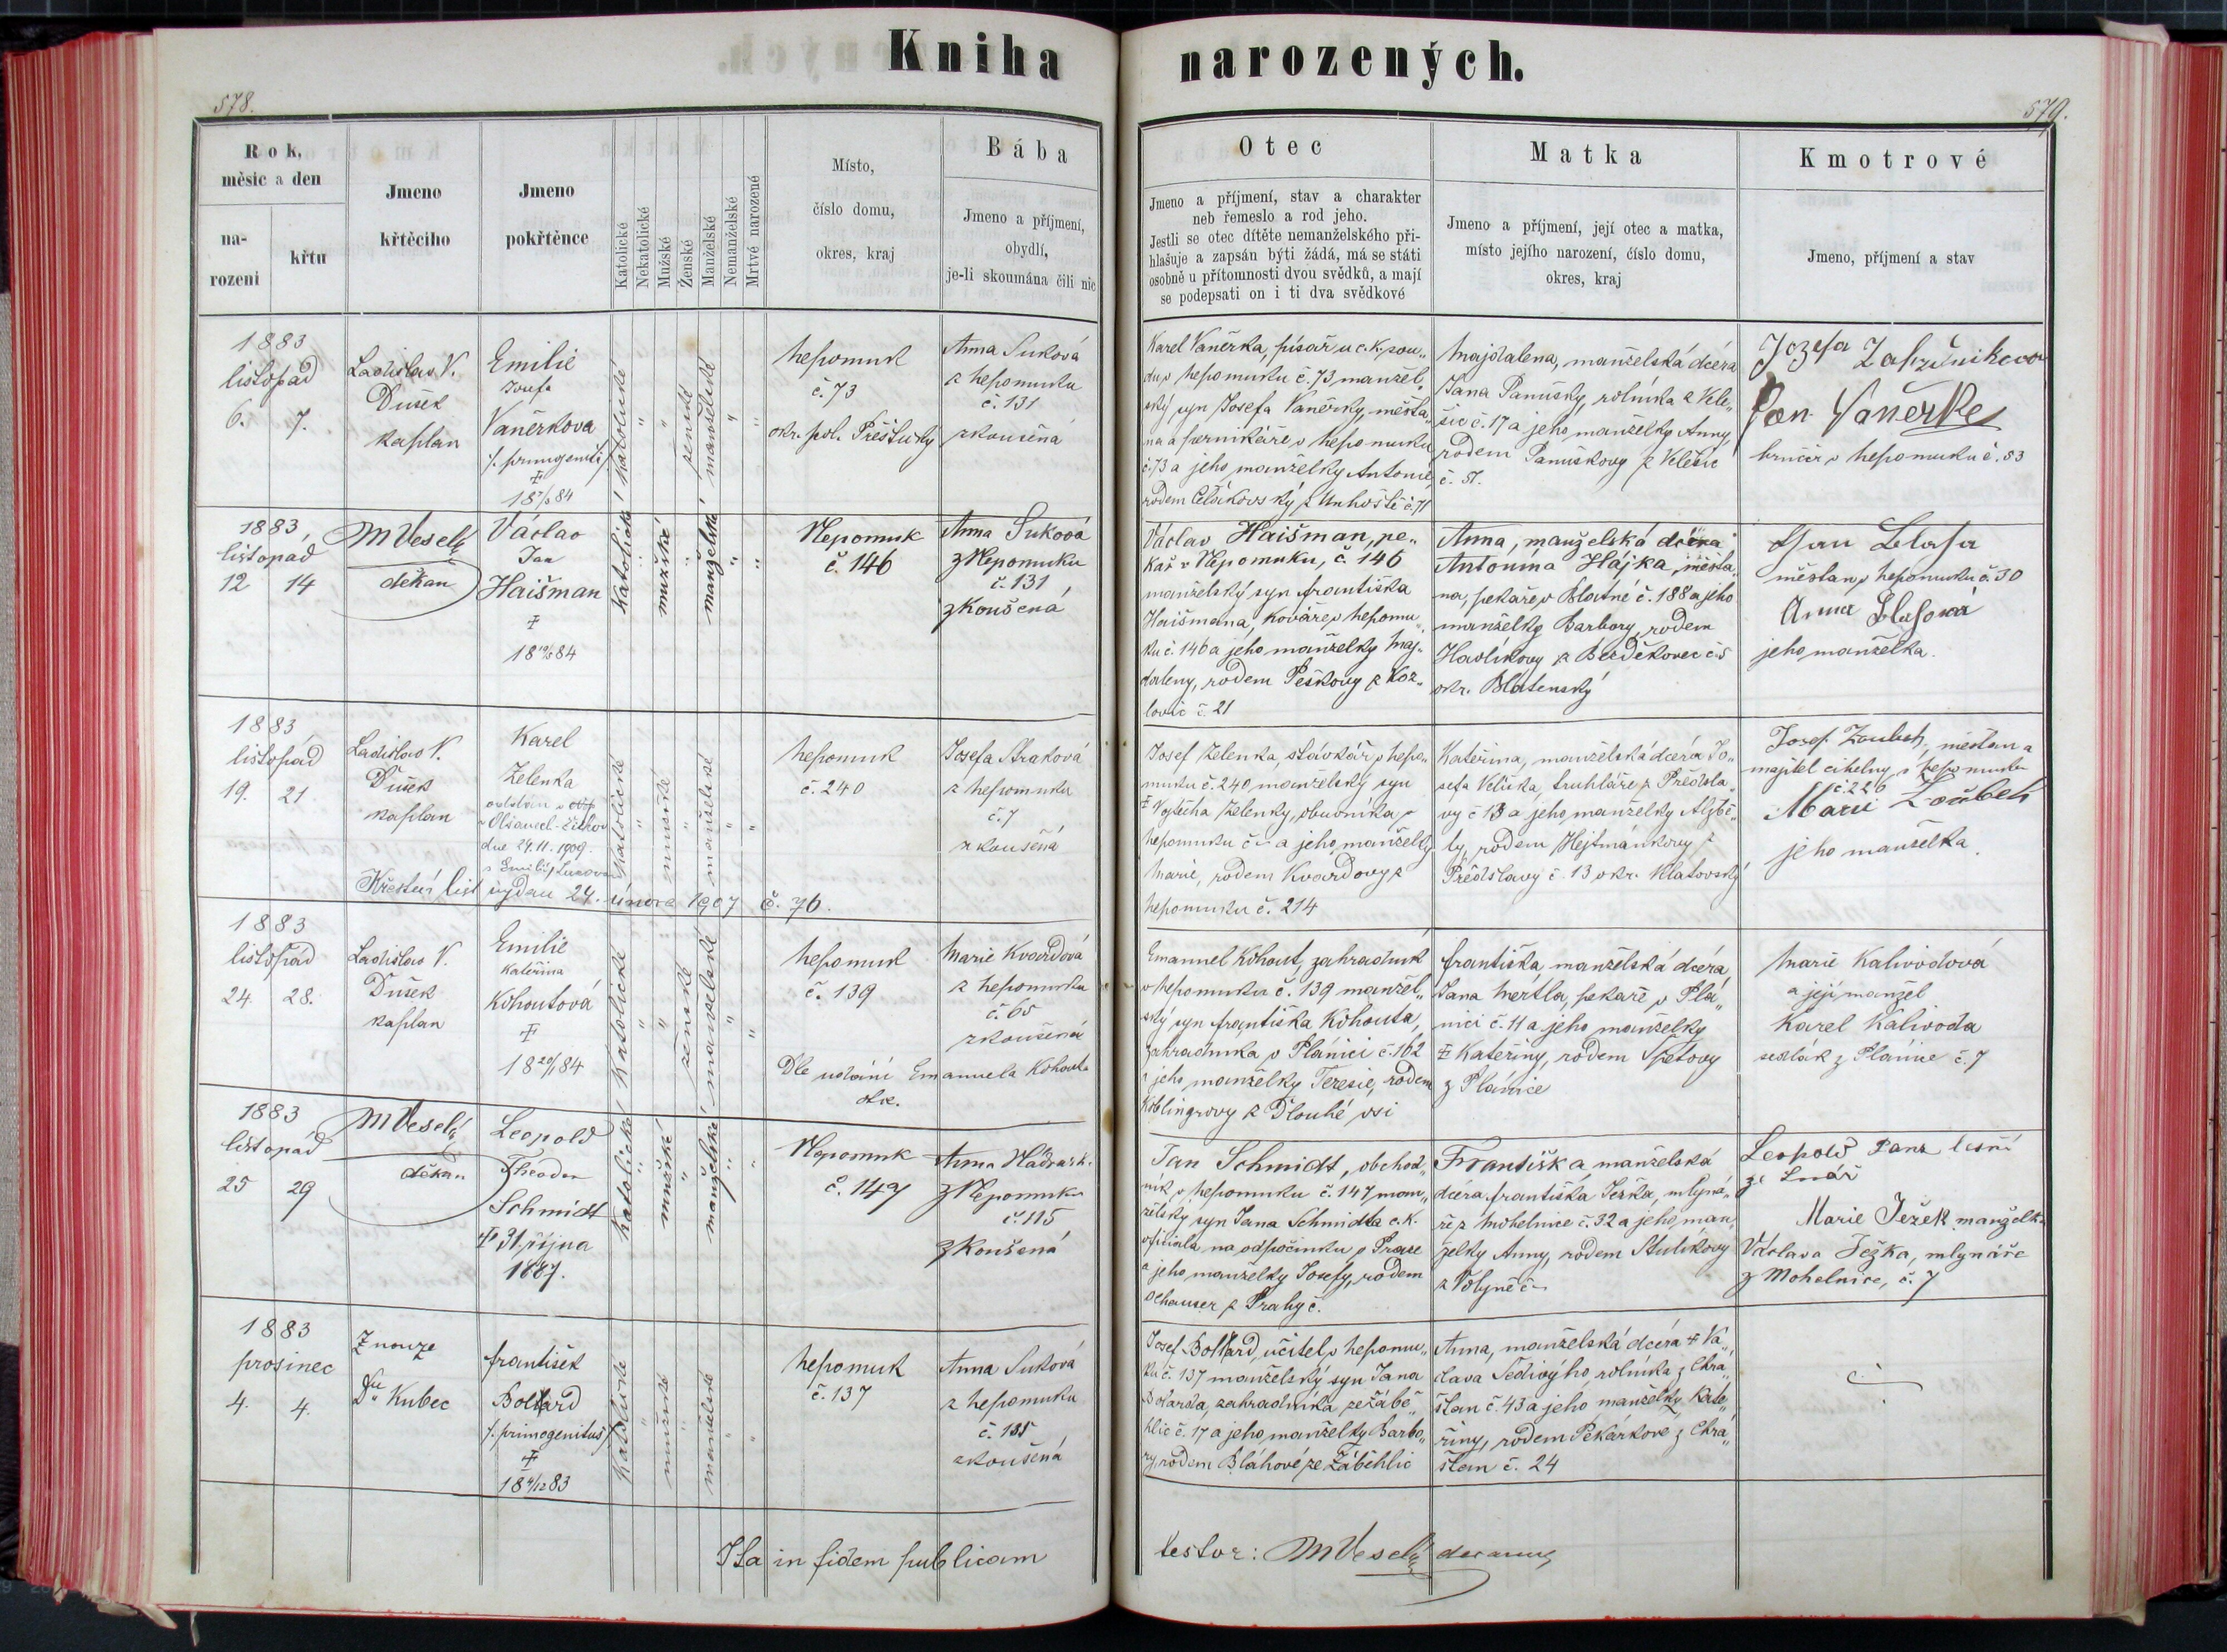 Kniha narozených.
578.
579.
Rok, měsíc a den
narození
křtu
Jmeno křtěcího
Jmeno pokřtěnce
Katolické
Nekatolické
Mužské
Ženské
Manželské
Nemanželské
Mrtvě narozené
Místo,
číslo domu,
okres, kraj
Bába
Jmeno a příjmení,
obydlí,
je-li skoumána čili nic
Otec
Jmeno a příjmení, stav a charakter
neb řemeslo a rod jeho.
Jestli se otec dítěte nemanželského při-
hlašuje a zapsán býti žádá, má se státi
osobně u přítomnosti dvou svědků, a mají
se podepsati on i ti dva svědkové
Matka
Jmeno a příjmení, její otec a matka,
místo jejího narození, číslo domu,
okres, kraj
Kmotrové
Jmeno, příjmení a stav
1883
listopad
6. 7.
Ladislav V.
Dušek
kaplan
Emilie
Josefa
Vaněrkova
/. primogenita /
katolické
ženské
manželské
Nepomuk
č. 73
okr. pol. Přeštický
Anna Suková
z Nepomuku
č. 131
zkoušená
Karel Vaněrka, písař u c.k. sou„
du v Nepomuku č. 73 manžel„
ský syn Josefa Vaněrky, měšťa„
na a perníkáře v Nepomuku
č. 73 a jeho manželky Antonie,
rodem Čelakovský z Unhoště č. 71
Majdalena, manželská dcera
Jana Panušky, rolníka z Vele„
šic č. 17 a jeho manželky Anny,
rodem Panuškovy z Velešic
č. 51.
Jozefa
Jan Vaněrka
v Nepomuku č. 53
1883,
listopad
12 14
M Veselý
děkan
Václav
Jan
Haišman
katolické
mužské
manželské
Nepomuk
č. 146
Anna Suková
z Nepomuku
č. 131
zkoušená
Václav Haišman, pe„
kař v Nepomuku, č. 146
manželský syn Františka
Haišmana, kováře v Nepomu„
ku č. 146 a jeho manželky Maj„
daleny, rodem Peškovy z Koz„
lovic č. 21
Anna, manželská dcera
Antonína Hájka, měšťa„
na, pekaře v Blatné č. 188 a jeho
manželky Barbory, rodem
Havlíkovy z Bezděkovec č. 5
okr. Blatenský
Jan Blafa
měšťan v Nepomuku č. 30
Anna Blafová
jeho manželka.
1883
listopad
19. 21.
Ladislav V.
Dušek
kaplan
Karel
Zelenka
dne 24.11.1909.
Křestní list vydán 24. února 1907 č. 76.
katolické
mužské
manželské
Nepomuk
č. 240
Josefa Straková
z Nepomuku
č. 7
zkoušená
Josef Zelenka, stávkář v Nepo„
muku č. 240 manželský syn
Vojtěcha Zelenky, obuvníka v
Nepomuku č. – a jeho manželky
Marie, rodem Kvardovy z
Nepomuku č. 214
Kateřina, manželská dcera Jo„
sefa Velíška, truhláře z Předsla„
vy č. 13 a jeho manželky Alžbě„
ty, rodem Hejtmánkovy z
Předslavy č. 13 okr. Klatovský
Josef Zoubek, měšťan a
majitel cihelny v Nepomuku
č. 226
Marie Zoubek
jeho manželka.
1883
listopad
24. 28.
Ladislav V.
Dušek
kaplan
Emilie
Kateřina
Kohoutová
katolické
ženské
manželské
Nepomuk
č. 139
Marie Kvardová
z Nepomuku
č. 65
zkoušená
Dle udání Emanuela Kohouta
otce.
Emanuel Kohout, zahradník
v Nepomuku č. 139 manžel„
ský syn Františka Kohouta,
zahradníka v Plánici č. 162
a jeho manželky Terezie, rodem
Köblingrovy z Dlouhé vsi
Františka manželská dcera
Jana Mertla, pekaře v Plá„
nici č. 11 a jeho manželky
Kateřiny, rodem Špetovy
z Plánice
Marie Kalivodová
a její manžel
Karel Kalivoda
sedlák z Plánice č. 7
1883
listopad
25 29
M Veselý
děkan
Leopold
Theodor
Schmidt
31. října
1887.
katolické
mužské
manželské
Nepomuk
č. 147
Anna
z Nepomuku
č. 115
zkoušená
Jan Schmidt, obchod„
ník v Nepomuku č. 147 man„
želský syn Jana Schmidta c.k.
officiala na odpočinku v Praze
a jeho manželky Josefy, rodem
z Prahy č.
Františka manželská
dcera Františka Ježka, mlyná„
ře z Mohelnice č. 32 a jeho man„
želky Anny, rodem Stulíkovy
z Volyně č. –
Leopold Panz lesní
ze Lnář
Marie Ježek manželka
Václava Ježka, mlynáře
z Mohelnice, č. 7
1883
prosinec
4. 4.
Z nouze
Dr. Kubec
František
Bolard
/. primogenitus /
18 4/12 83
katolické
mužské
manželské
Nepomuk
č. 137
Anna Suková
z Nepomuku
zkoušená
Josef Bolard, učitel v Nepomu„
ku č. 137 manželský syn Jana
Bolarda, zahradníka ze Záběh„
hlic č. 17 a jeho manželky Barbo„
ry, rodem Bláhové ze Záběhlic
Anna, manželská dcera Vá„
clava Šedivýho, rolníka z Chrá„
šťan č. 43 a jeho manželky Kate„
řiny, rodem Pekárkové z Chrá„
šťan č. 24
Ita in fidem publicam
testor: M Veselý decanus